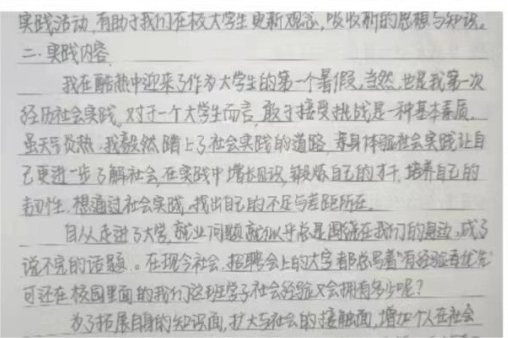 实践活动,有助于我们在校大学生更新观念,吸收新的思想与知识。
二、实践内容
我在酷热中迎来了作为大学生的第一个暑假,当然,也是我第一次
经历社会实践。对于一个大学生而言,敢于接受挑战是一种基本素质。
虽天气炎热,我毅然踏上了社会实践的道路,亲身体验社会实践让自
己更进一步了解社会,在实践中增长见识,锻炼自己的才干,培养自己的
韧性,想通过社会实践,找出自己的不足与差距所在。
自从走进了大学,就业问题就似乎总是围绕在我们的身边,成了
说不完的话题。在现今社会,招聘会上的大字都总写着"有经验者优先"
可还在校园里面的我们这班学子社会经验又会拥有多少呢?
为了拓展自身的知识面,扩大与社会的接触面,增加个人在社会